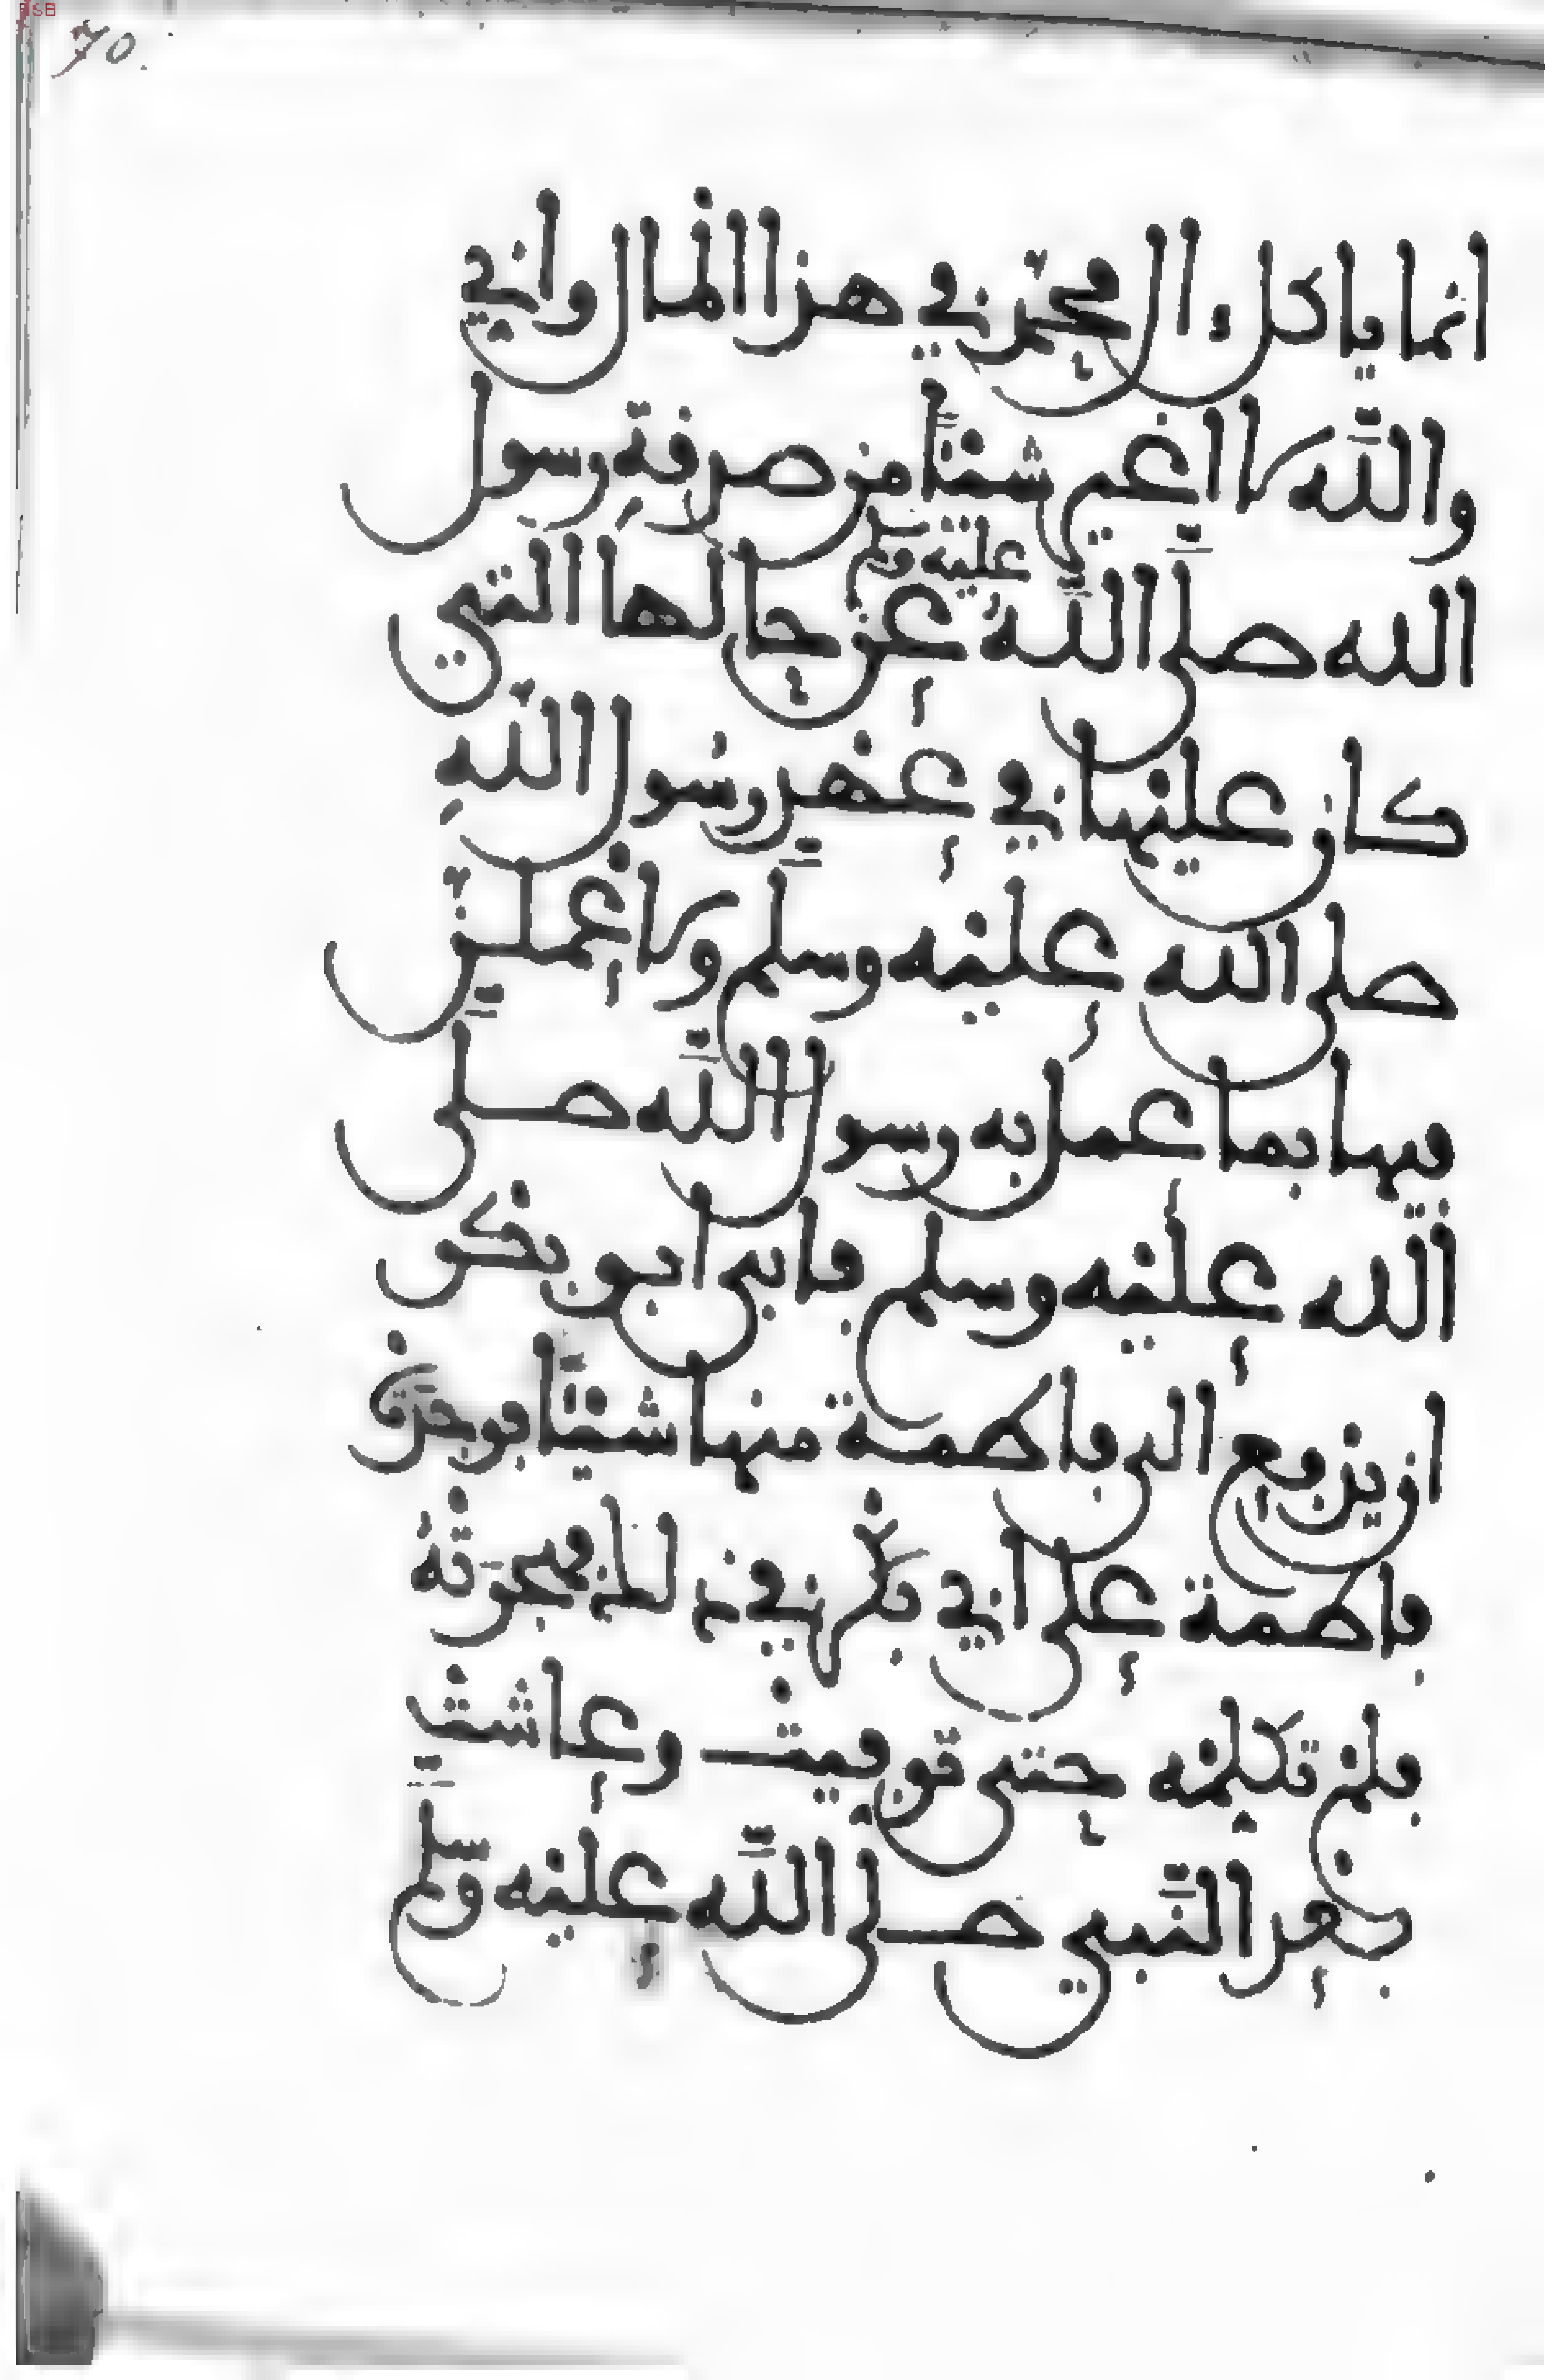 BSB
70.
انما ياكل ءال محمد في هذا المال واني
والله لا اغير شيئا من صدقة رسول
الله صلى الله عليه وسلم عن حالها التي
كان عليها في عهد رسول الله
صلى الله عليه وسلم ولاعملن
فيها بما عمل به رسول الله صلى
الله عليه وسلم فابى ابو بكر
ان يدفع الى فاطمة منها شيئا فوجدت
فاطمة على ابي بكر في ذلك فهجرته
فلم تكلمه حتى توفيت وعاشت
بعد النبي صلى الله عليه وسلم